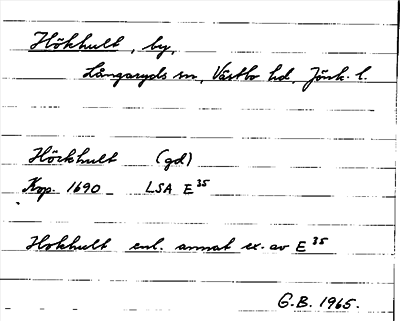 Hökhult, by,
Långaryds sn, Västbo hd, Jönk. l.
Höckhult (gd)
Kop. 1690 LSA E 35
Hokhult enl. annat ex. av E 35
G.B. 1965.